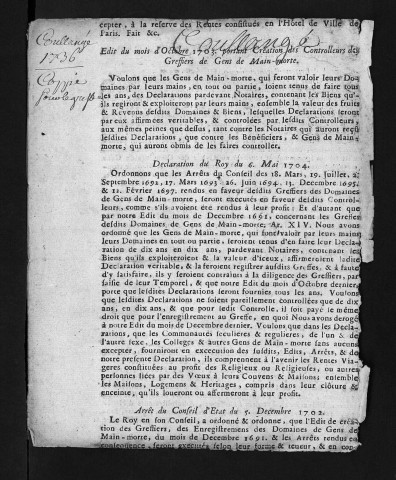 cepter, à la reserve des Rentes constitués en l'Hôtel de Ville de
Paris. Fait &c.
Coullangé
1736
Coullangé
Coppie
Edit du mois d'Octobre 1703. portant Création des Controlleurs des
Greffiers de Gens de Main-morte.
Voulons que les Gens de Main-morte, qui feront valoir leurs Do-
maines par leurs mains, en tout ou partie, soient tenus de faire tous
les dix ans, des Declarations pardevant Notaires, contenant les Biens qu'i-
ils regiront & exploiteront par leurs mains, ensemble la valeur des fruits
& Revenus desdits Domaines & Biens, lesquelles Declarations seront
par eux affirmées veritables, & controlées par lesdits Controlleurs,
aux mêmes peines que dessus, tant contre les Notaires qui auront reçû
lesdites Declarations, que contre les Bénéficiers, & Gens de Main-
morte, qui auront obmis de les faire controller.
Declaration du Roy du 6. Mai 1704.
Ordonnons que les Arrêts du Conseil des 18. Mars, 19. Juillet, 2.
Septembre 1692. 17. Mars 1693. 26. Juin 1694. 13. Decembre 1695.
& 12. Février 1697. rendus en faveur desdits Greffiers des Domaines
de Gens de Main-morte, seront executés en faveur desdits Control-
leurs, comme s'ils avoient été rendus à leur profit: Et d'autant que
par notre Edit du mois de Decembre 1691. concernant les Greffes
desdits Domaines de Gens de Main-morte, Ar. XIV. Nous avons
ordonné que les Gens de Main-morte, qui font valoir par leurs mains
leurs Domaines en tout ou partie, seroient tenus d'en faire leur Decla-
ration de dix ans en dix ans, pardevant Notaires, contenant les
Biens qu'ils exploiteroient & la valeur d'iceux, affirmeroient ladite
Declaration veritable, & la feroient registrer ausdits Greffes, & à faute
d'y satisfaire, ils y seroient contrains à la diligence des Greffiers, par
saisie de leur Temporel, & que notre Edit du mois d'Octobre dernier,
porte que lesdites Declarations seront fournies tous les ans. Voulons
que lesdites Declarations ne soient pareillement controllées que de dix
ans, en dix ans, & que pour ledit Controlle, il soit payé le même
droit que pour l'enregistrement au Greffe, en quoi Nous avons derogé
à notre Edit du mois de Decembre dernier. Voulons que dans les Decla-
rations, que les Communautés seculieres & regulieres, de l'un & de
l'autre sexe, les Colleges & autres Gens de Main-morte sans aucune
excepter, fourniront en execution des susdits, Edits, Arrêts, & de
notre presente Declaration, ils comprennent à l'avenir les Rentes Via-
geres constituées au profit des Religieux ou Religieuses, ou autres
personnes liées par des Vœux à leurs Couvens & Maisons; ensemble
les Maisons, Logemens & Heritages, compris dans leur clôture &
enceinte, qu'ils loueront ou affermeront à leur profit.
Arrêt du Conseil d'Etat du 5. Decembre 1702.
Le Roy en son Conseil, a ordonné & ordonne, que l'Edit de créa-
tion des Greffiers, des Enregistremens des Domaines de Gens de
Main-morte, du mois de Decembre 1691. & les Arrêts rendus en
consequence, seront executés selon leur forme & teneur, & en con-